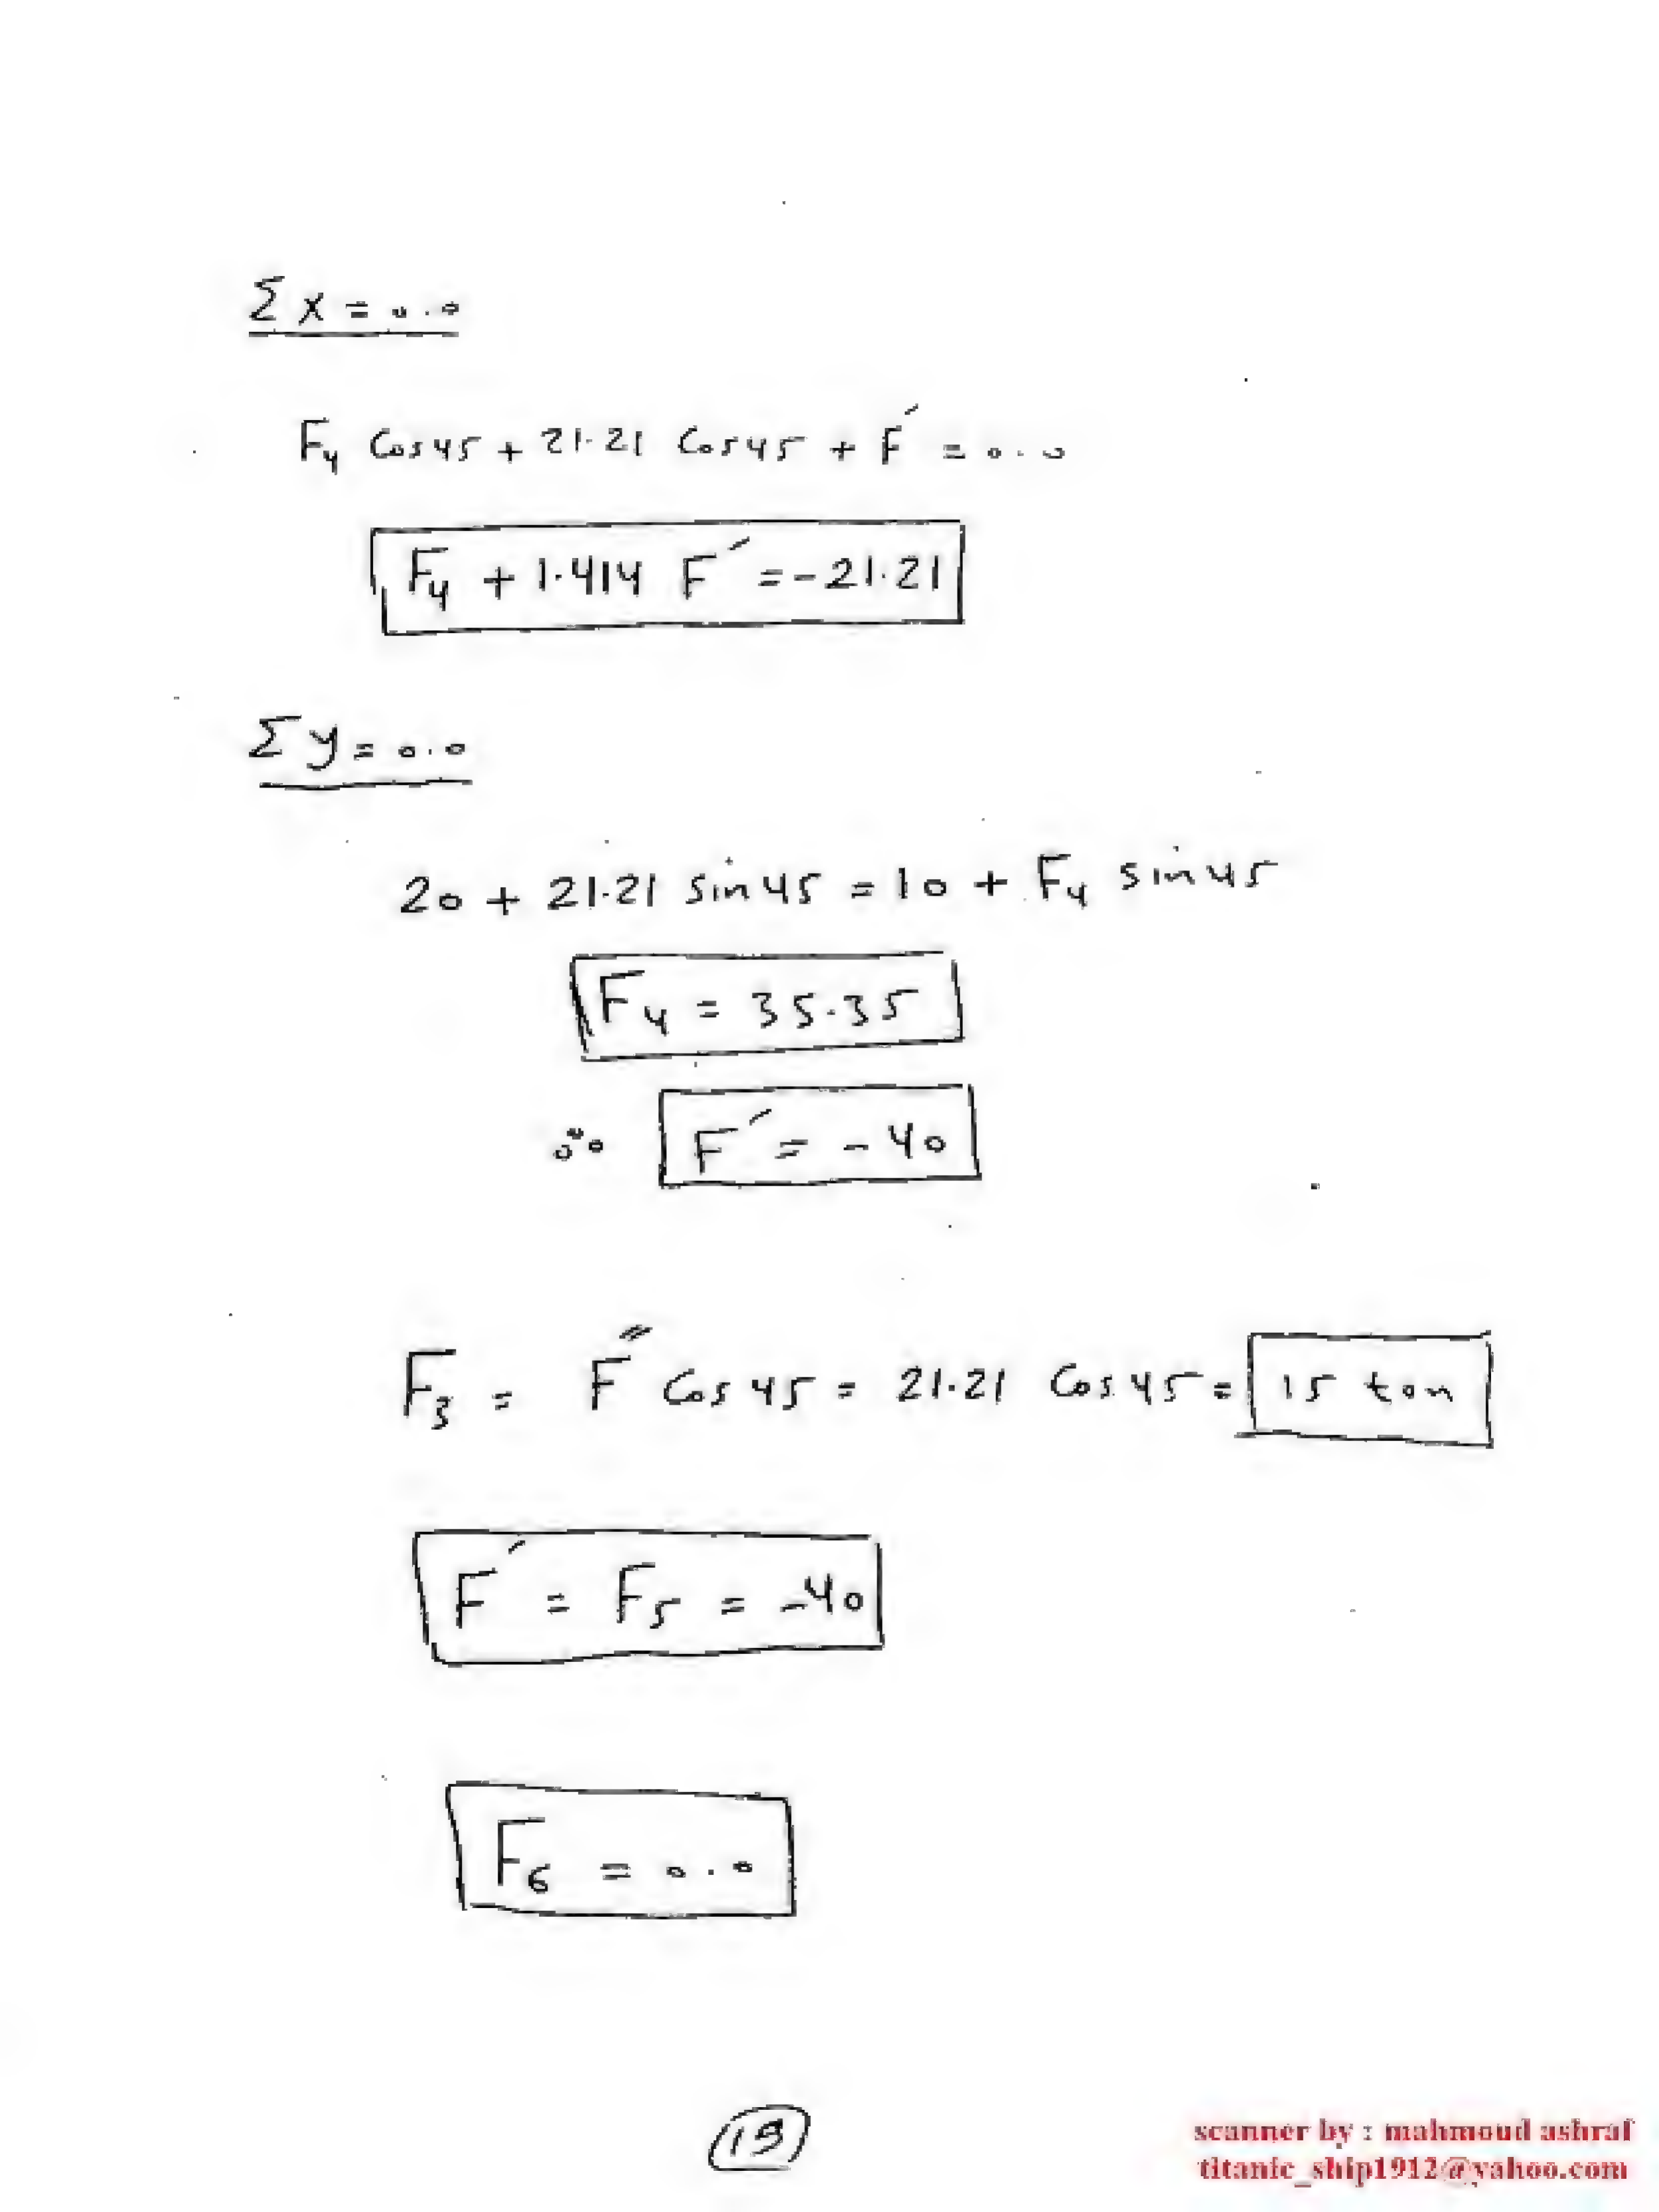 Σ X = 0.0
F4 Cos 45 + 21.21 Cos 45 + F′ = 0.0
F4 + 1.414 F′ = - 21.21
Σ y = 0.0
20 + 21.21 sin 45 = 10 + F4 sin 45
F4 = 35.35
∴ F′ = - 40
F3 = F″ Cos 45 = 21.21 Cos 45 = 15 ton
F′ = F5 = -40
F6 = 0.0
(19)
scanner by : mahmoud ashraf
titanic_ship1912@yahoo.com